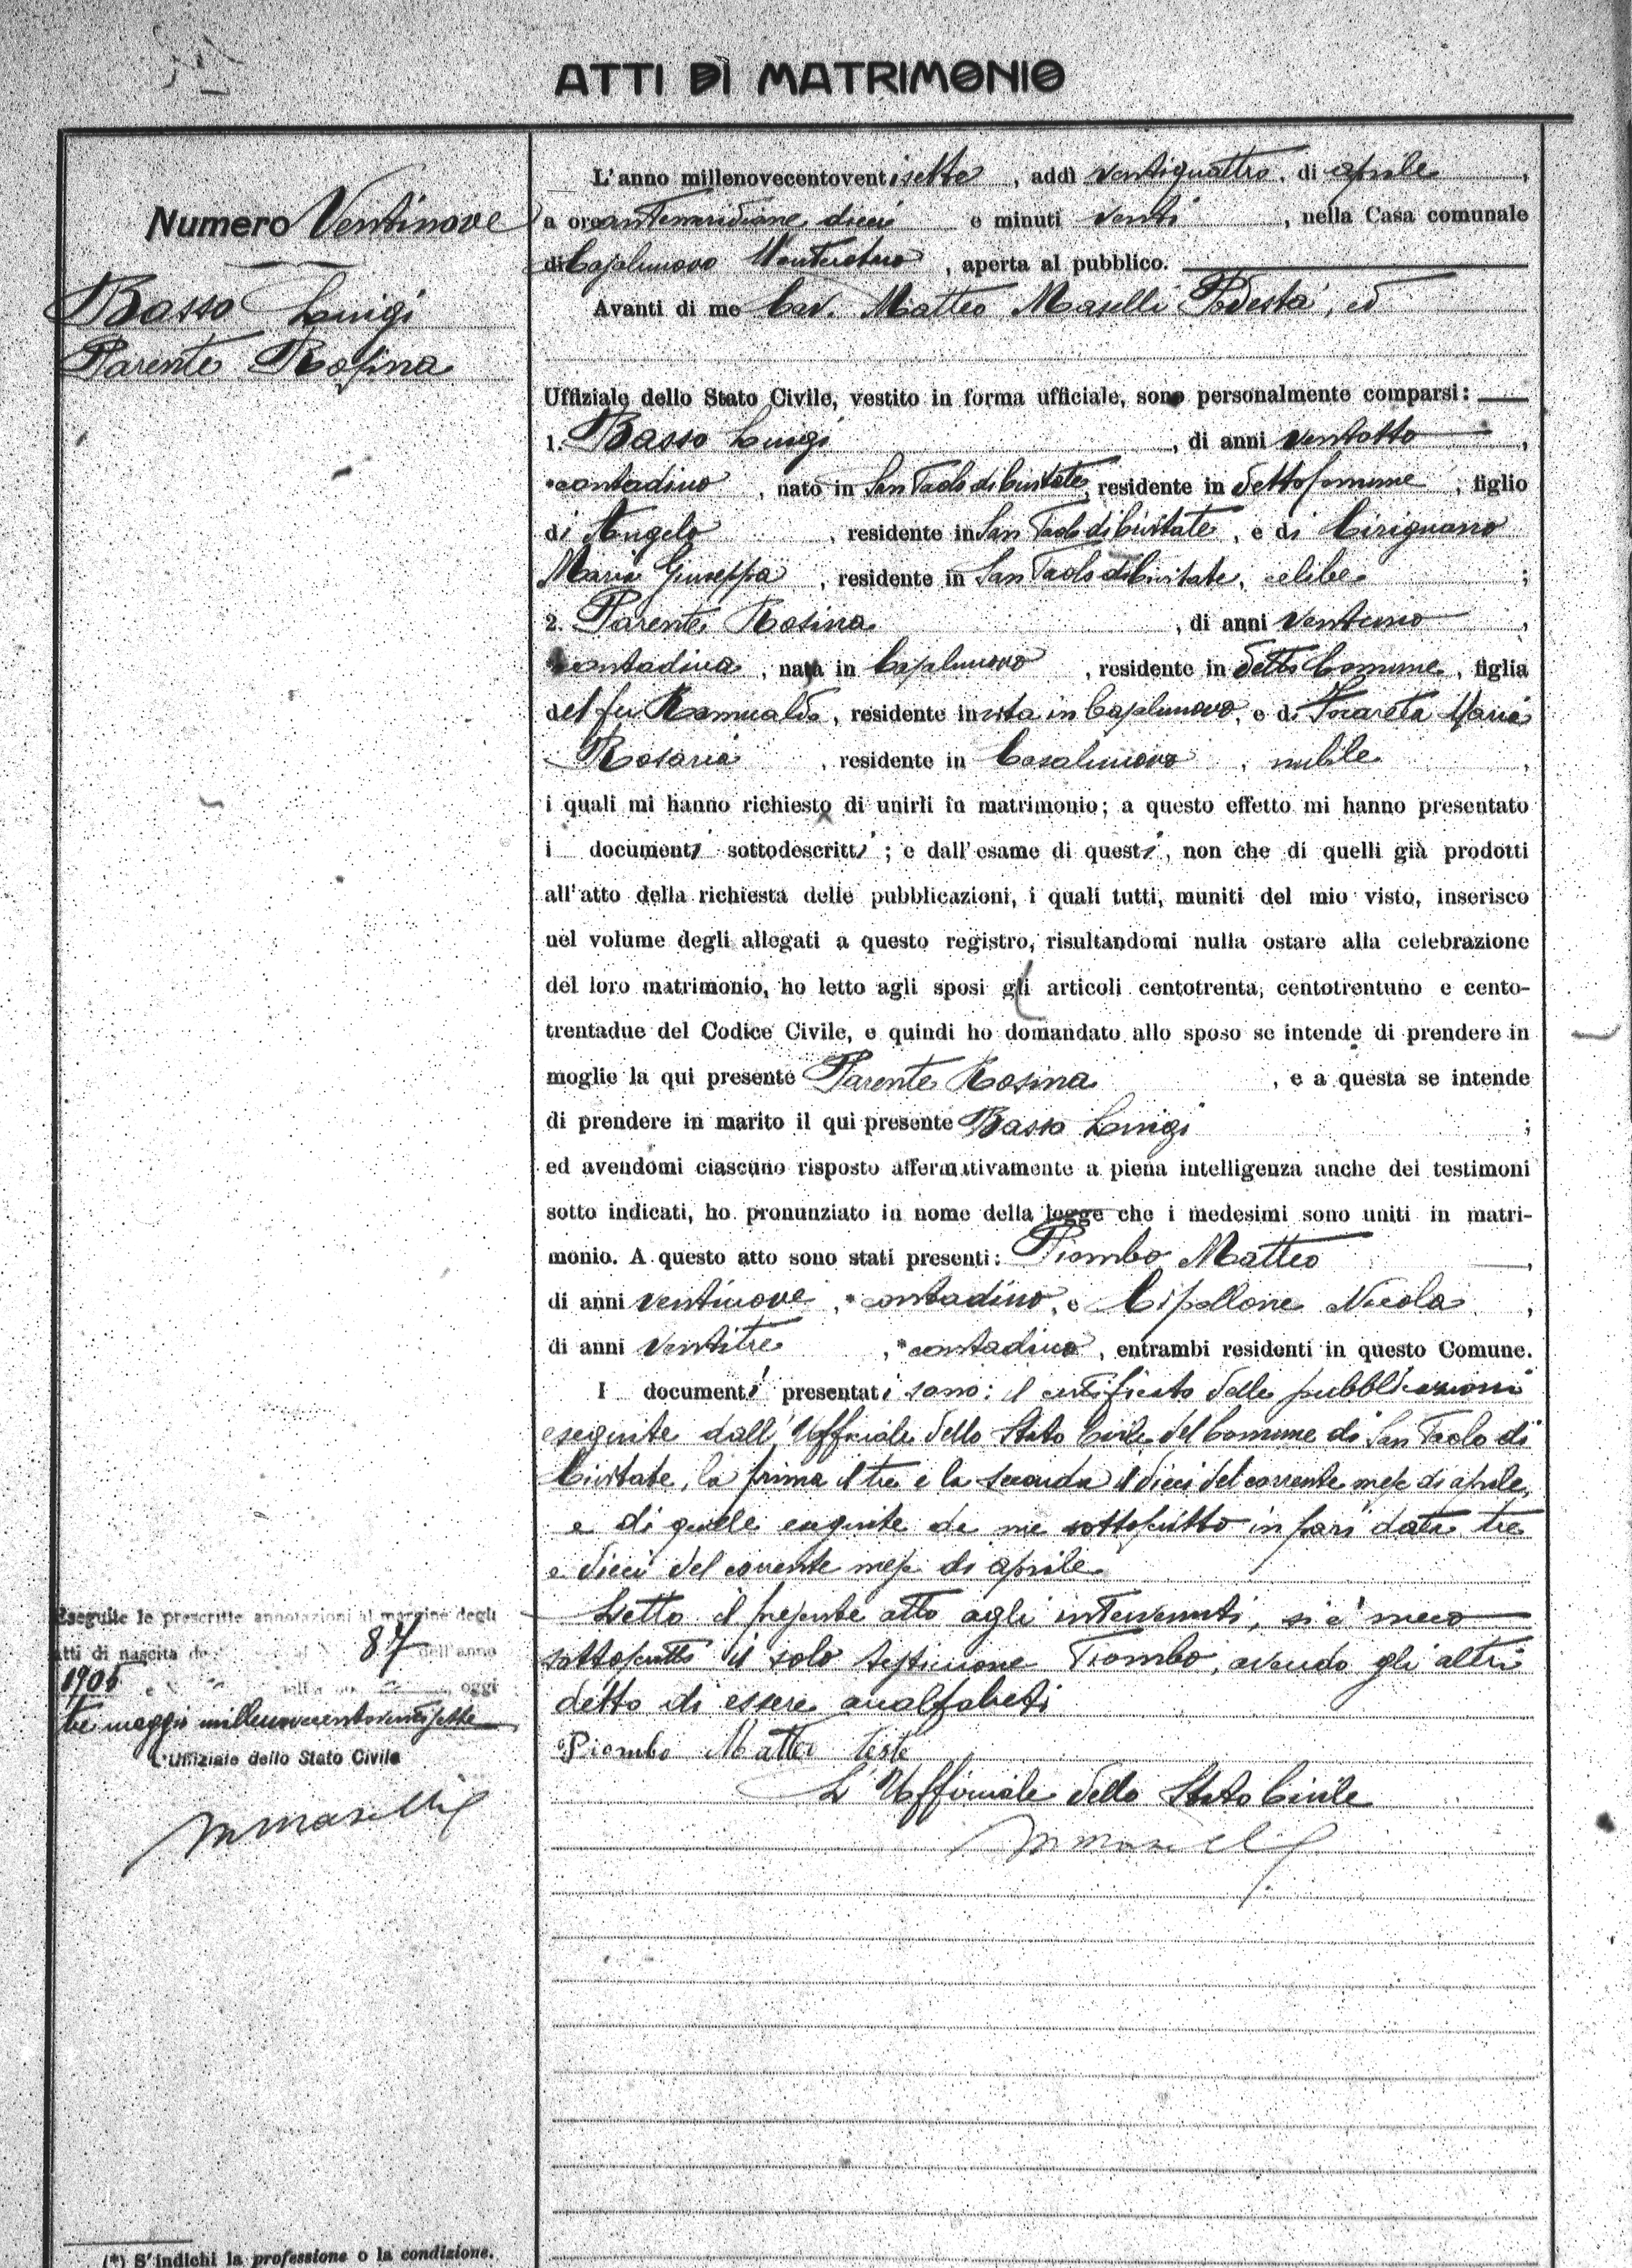 ATTI DI MATRIMONIO
Numero Ventinove
Basso Luigi
Parente Rosina
L'anno millenovecentoventisette, addì ventiquattro, di aprile,
a ore antemeridiane dieci e minuti venti, nella Casa comunale
di Casalnuovo Monterotaro, aperta al pubblico.
Avanti di me Cav. Matteo Maselli Podestà, ed
Uffiziale dello Stato Civile, vestito in forma ufficiale, sono personalmente comparsi:
1. Basso Luigi, di anni ventotto,
*contadino, nato in San Paolo di Civitate, residente in detto Comune, figlio
di Angelo, residente in San Paolo di Civitate, e di Cirignano
Maria Giuseppa, residente in San Paolo di Civitate, celibe;
2. Parente Rosina, di anni ventuno,
*contadina, nata in Casalnuovo, residente in detto Comune, figlia
del fu Romualdo, residente in vita in Casalnuovo, e di Maria
Rosaria, residente in Casalnuovo, nubile,
i quali mi hanno richiesto di unirli in matrimonio; a questo effetto mi hanno presentato
i documenti sottodescritti; e dall'esame di questi, non che di quelli già prodotti
all'atto della richiesta delle pubblicazioni, i quali tutti, muniti del mio visto, inserisco
nel volume degli allegati a questo registro, risultandomi nulla ostare alla celebrazione
del loro matrimonio, ho letto agli sposi gli articoli centotrenta, centotrentuno e cento-
trentadue del Codice Civile, e quindi ho domandato allo sposo se intende di prendere in
moglie la qui presente Parente Rosina, e a questa se intende
di prendere in marito il qui presente Basso Luigi;
ed avendomi ciascuno risposto affermativamente a piena intelligenza anche dei testimoni
sotto indicati, ho pronunziato in nome della legge che i medesimi sono uniti in matri-
monio. A questo atto sono stati presenti: Piombo Matteo,
di anni ventinove, *contadino, e Cipollone Nicola,
di anni ventitre, *contadino, entrambi residenti in questo Comune.
I documenti presentati sono: il certificato delle pubblicazioni
eseguite dall'Uffiziale dello Stato Civile del Comune di San Paolo di
Civitate, la prima il tre e la seconda il dieci del corrente mese di aprile,
e di quelle eseguite da me sottoscritto in pari data tre
e dieci del corrente mese di aprile.
Letto il presente atto agli intervenuti, si è meco
sottoscritto il solo testimone Piombo, avendo gli altri
detto di essere analfabeti
Piombo Matteo teste
L'Uffiziale dello Stato Civile
M Maselli
Eseguite le prescritte annotazioni al margine degli
atti di nascita 87 dell'anno
1905 oggi
tre maggio millenovecentoventisette
L'Uffiziale dello Stato Civile
M Maselli
(*) S'indichi la professione o la condizione.